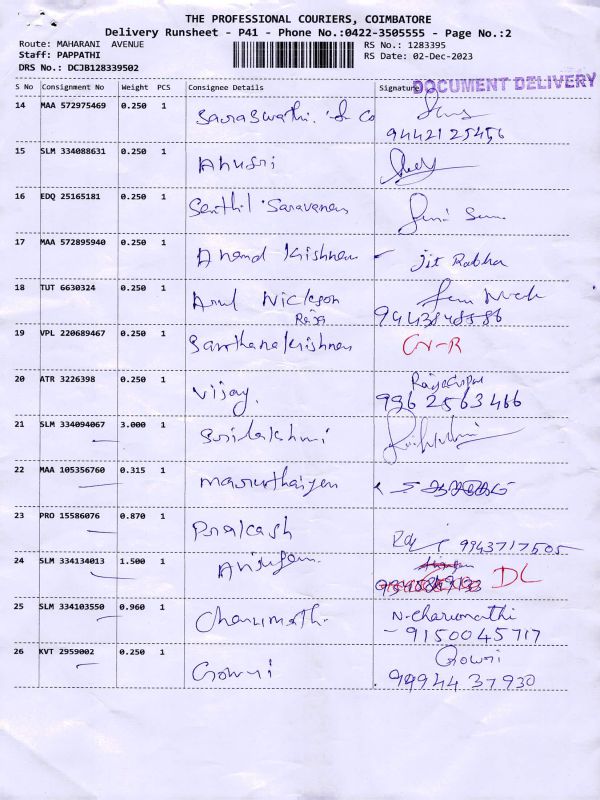 THE PROFESSIONAL COURIERS, COIMBATORE
Delivery Runsheet - P41 - Phone No.:0422-3505555 - Page No.:2
Route: MAHARANI AVENUE
RS No.: 1283395
Staff: PAPPATHI
RS Date: 02-Dec-2023
DRS No.: DCJB128339502
DOCUMENT DELIVERY
S No Consignment No Weight PCS Consignee Details Signature
14 MAA 572975469 0.250 1 Saraswathi. & Co
9442125456
15 SLM 334088631 0.250 1 Anusri
16 EDQ 25165181 0.250 1 Senthil Saravanan
17 MAA 572895940 0.250 1 Anand Krishnan Jit Rabha
18 TUT 6630324 0.250 1 Arul Nickson
Raja 9443848586
19 VPL 220689467 0.250 1 Santhanakrishnan
20 ATR 3226398 0.250 1 Vijay.
9362563466
21 SLM 334094067 3.000 1 Srilakshmi
22 MAA 105356760 0.315 1
23 PRO 15586076 0.870 1 Prakash
9943717605
24 SLM 334134013 1.500 1 DL
25 SLM 334103550 0.960 1 Charumath. N. Charumathi
- 9150045717
26 KVT 2959002 0.250 1 Gowri Gowri
9994437930